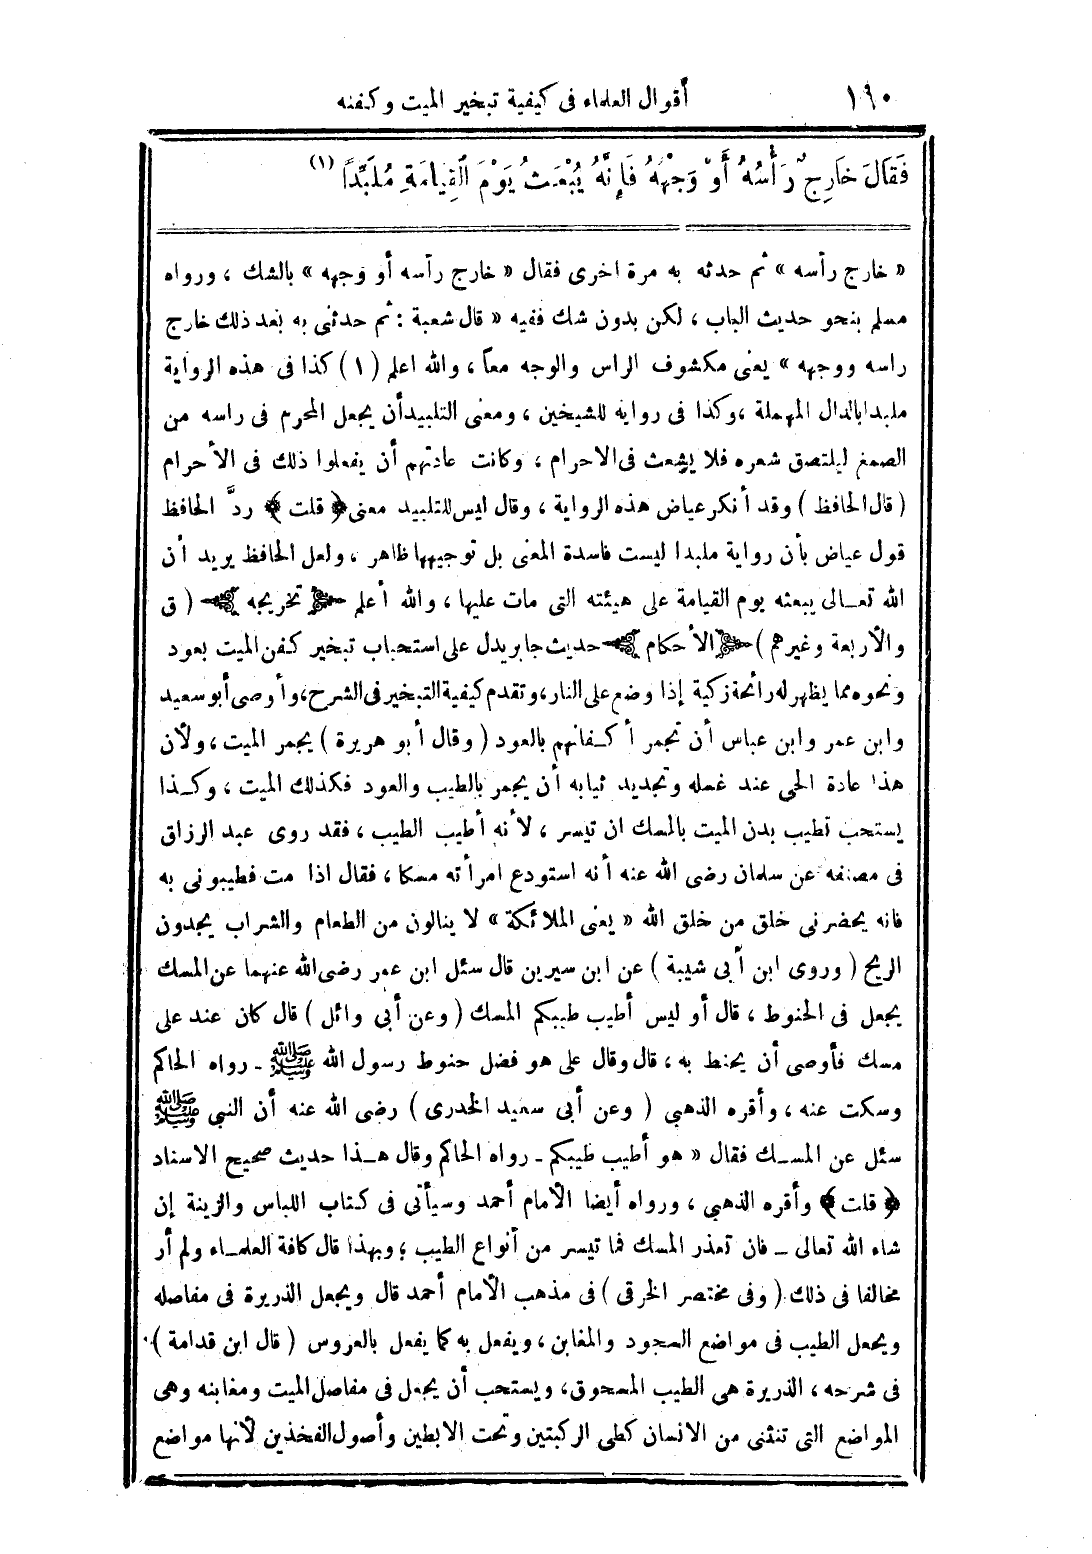 ١٩٠
أقوال العلماء فى كيفية تبخير الميت وكفنه
فَقَالَ خَارِجٌ رَأْسُهُ أَوْ وَجْهُهُ فَإِنَّهُ يُبْعَثُ يَوْمَ الْقِيَامَةِ مُلَبِّدًا (١)
« خارج رأسه » ثم حدثه به مرة اخرى فقال « خارج رأسه أو وجهه » بالشك ، ورواه
مسلم بنحو حديث الباب ، لكن بدون شك ففيه « قال شعبة : ثم حدثنى به بعد ذلك خارج
راسه ووجهه » يعنى مكشوف الراس والوجه معاً ، والله اعلم (١) كذا فى هذه الرواية
ملبدا بالدال المهملة ، وكذا فى رواية للشيخين ، ومعنى التلبيد أن يجعل المحرم فى راسه من
الصمغ ليلتصق شعره فلا يشعث فى الاحرام ، وكانت عادتهم أن يفعلوا ذلك فى الأحرام
( قال الحافظ ) وقد أنكر عياض هذه الرواية ، وقال ليس للتلبيد معنى ﴿ قلت ﴾ ردَّ الحافظ
قول عياض بأن رواية ملبدا ليست فاسدة المعنى بل توجيهها ظاهر ، ولعل الحافظ يريد أن
الله تعـالى يبعثه يوم القيامة على هيئته التى مات عليها ، والله أعلم ﴿ تخريجه ﴾ ( ق
والأربعة وغيرهم ) ﴿ الأحكام ﴾ حديث جابر يدل على استحباب تبخير كفن الميت بعود
ونحوه مما يظهر له رائحة زكية إذا وضع على النار ، وتقدم كيفية التبخير فى الشرح ، وأوصى أبو سعيد
وابن عمر وابن عباس أن تجمر أكـفانهم بالعود ( وقال أبو هريرة ) يجمر الميت ، ولأن
هذا عادة الحى عند غسله وتجديد ثيابه أن يجمر بالطيب والعود فكذلك الميت ، وكـذا
يستحب تطيب بدن الميت بالمسك ان تيسر ، لأنه أطيب الطيب ، فقد روى عبد الرزاق
فى مصنفه عن سلمان رضى الله عنه أنه استودع امرأته مسكا ، فقال اذا مت فطيبونى به
فانه يحضرنى خلق من خلق الله « يعنى الملائكة » لا ينالون من الطعام والشراب يجدون
الريح ( وروى ابن أبى شيبة ) عن ابن سيرين قال سئل ابن عمر رضى الله عنهما عن المسك
يجعل فى الحنوط ، قال أو ليس أطيب طيبكم المسك ( وعن أبى وائل ) قال كان عند على
مسك فأوصى أن يحنط به ، قال وقال على هو فضل حنوط رسول الله ﷺ ـ رواه الحاكم
وسكت عنه ، وأقره الذهبي ( وعن أبى سعيد الخدرى ) رضى الله عنه أن النبى ﷺ
سئل عن المسـك فقال « هو أطيب طيبكم ـ رواه الحاكم وقال هـذا حديث صحيح الاسناد
﴿ قلت ﴾ وأقره الذهبي ، ورواه أيضا الأمام أحمد وسيأتى فى كتاب اللباس والزينة إن
شاء الله تعالى ـ فان تعذر المسك فما تيسر من أنواع الطيب ؛ وبهذا قال كافة العلمـاء ولم أر
مخالفا فى ذلك ( وفى مختصر الخرقى ) فى مذهب الأمام أحمد قال ويجعل الذريرة فى مفاصله
ويجعل الطيب فى مواضع السجود والمغابن ، ويفعل به كما يفعل بالعروس ( قال ابن قدامة )
فى شرحه ، الذريرة هى الطيب المسحوق ، ويستحب أن يجعل فى مفاصل الميت ومغابنه وهى
المواضع التى تنثنى من الانسان كطى الركبتين وتحت الابطين وأصول الفخذين لأنها مواضع